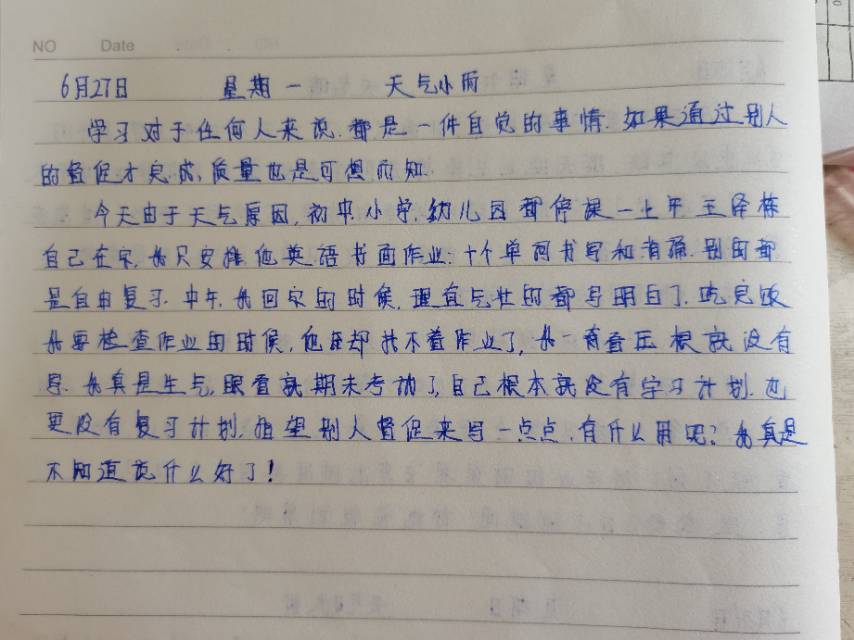 NO Date
6月27日 星期一 天气小雨
学习对于任何人来说.都是一件自觉的事情.如果通过别人
的督促才完成,质量也是可想而知.
今天由于天气原因,初中,小学,幼儿园都停课一上午王泽栋
自己在家,我只安排他英语书面作业:十个单词书写和背诵.别的都
是自由复习.中午.我回家的时候,理直气壮的都写明白了.吃完饭
我要检查作业的时候,他却找不着作业了,我一看压根就没有
写.我真是生气,眼看就期末考试了,自己根本就没有学习计划.也
更没有复习计划.指望别人督促来写一点点.有什么用呢?我真是
不知道说什么好了!